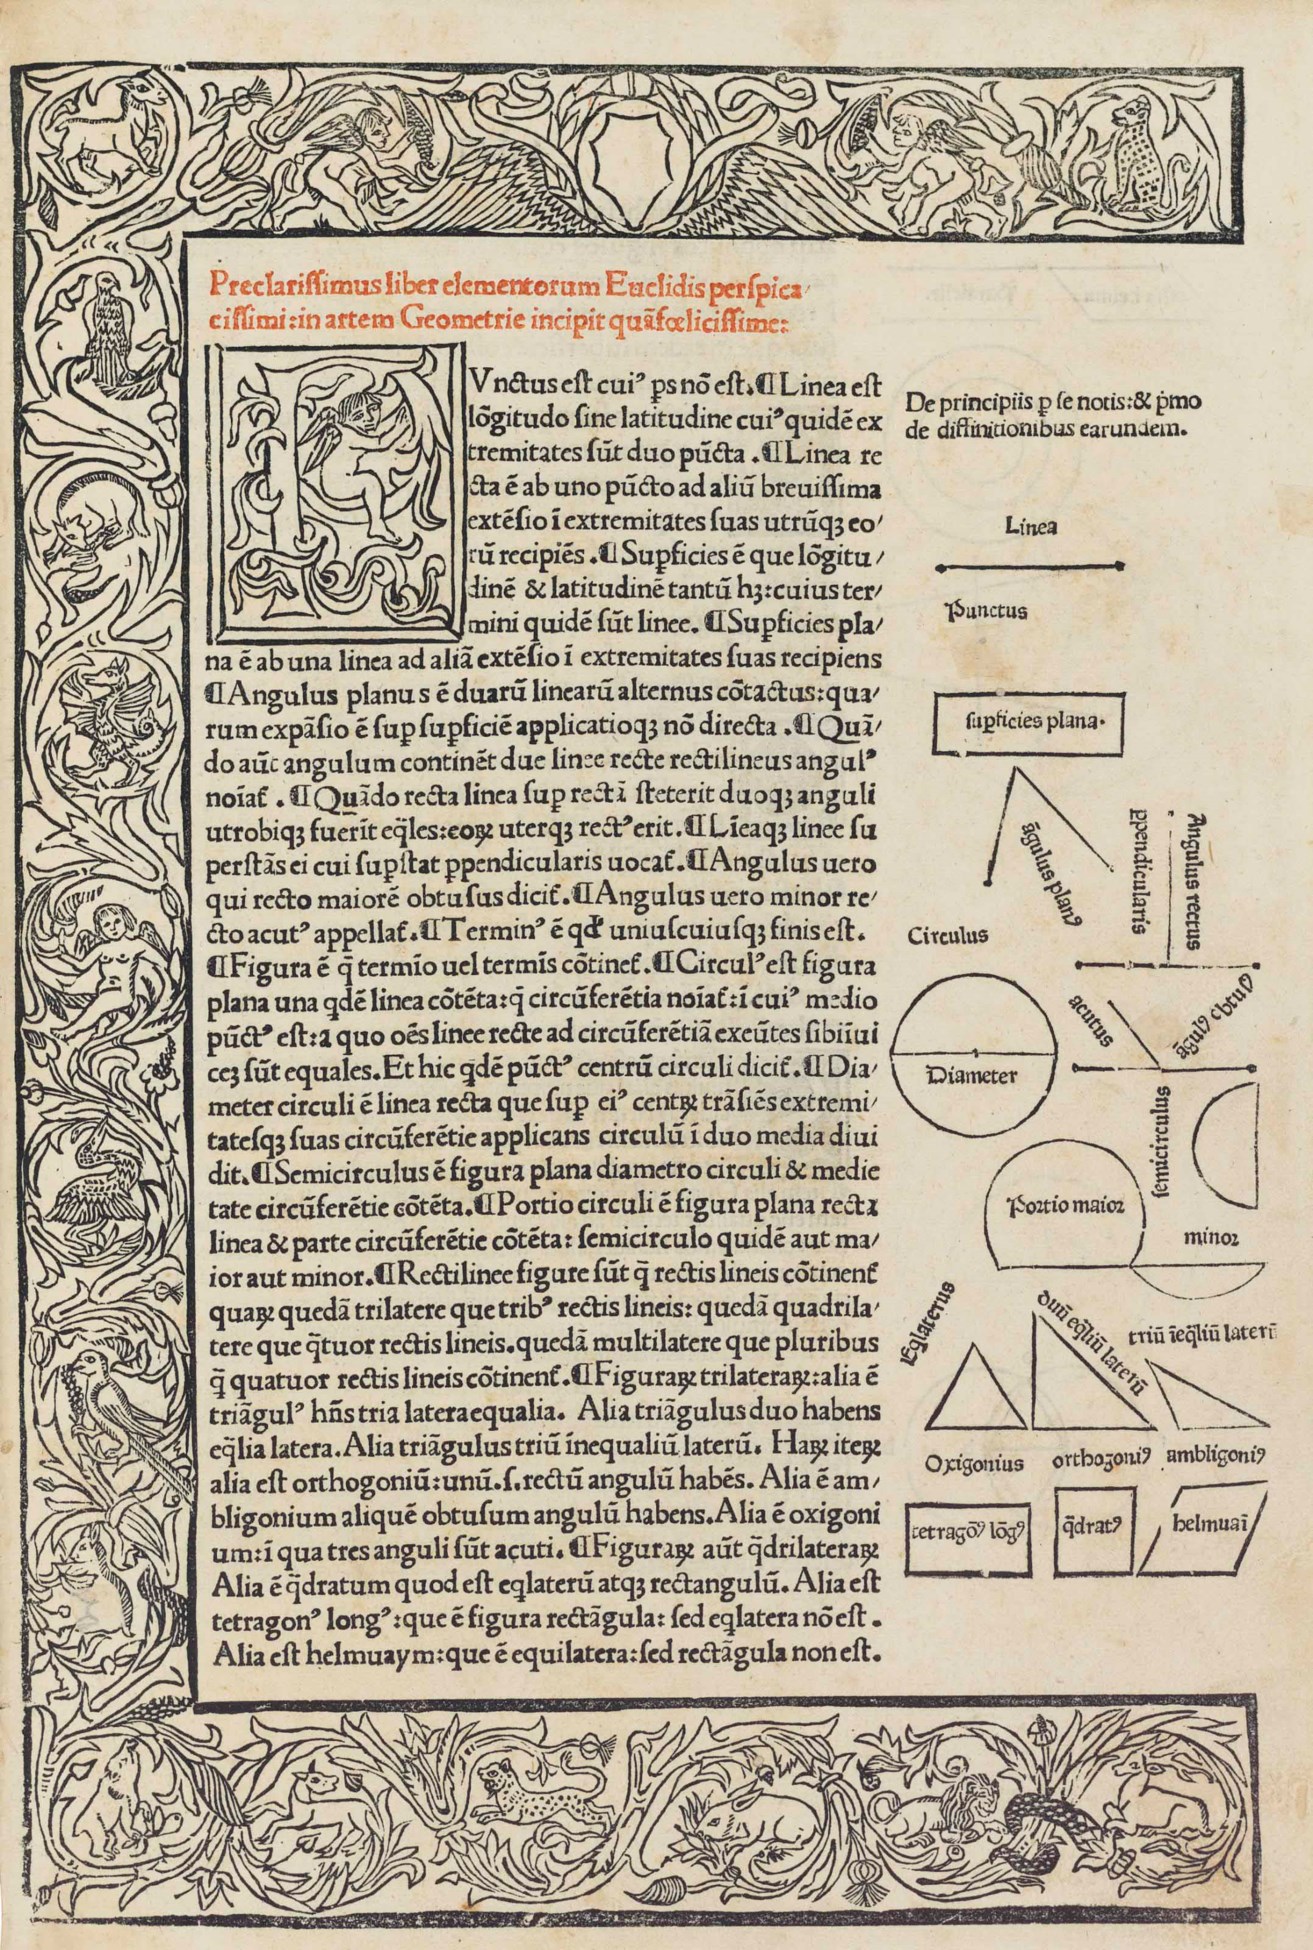 Preclarissimus liber elementorum Euclidis perspica/
cissimi: in artem Geometrie incipit quãfœlicissime:
PVnctus est cui⁹ ps nõ est. ¶ Linea est
lõgitudo sine latitudine cui⁹ quidẽ ex
tremitates sũt duo pũcta. ¶ Linea re
cta ẽ ab uno pũcto ad aliũ breuissima
extẽsio ĩ extremitates suas utrũqꝫ eo/
rũ recipiẽs. ¶ Supficies ẽ que lõgitu/
dinẽ & latitudinẽ tantũ hꝫ: cuius ter/
mini quidẽ sũt linee. ¶ Supficies pla/
na ẽ ab una linea ad aliã extẽsio ĩ extremitates suas recipiens
¶ Angulus planus ẽ duarũ linearũ alternus cõtactus: qua/
rum expãsio ẽ sup supficiẽ applicatioqꝫ nõ directa. ¶ Quã/
do aũt angulum continẽt due linee recte rectilineus angul⁹
noĩat̃. ¶ Quãdo recta linea sup rectã steterit duoqꝫ anguli
utrobiqꝫ fuerĩt eq̃les: eoꝝ uterqꝫ rect⁹ erit. ¶ Lĩeaqꝫ linee su
perstãs ei cui supstat ꝑpendicularis uocat̃. ¶ Angulus uero
qui recto maiorẽ obtusus dicit̃. ¶ Angulus uero minor re/
cto acut⁹ appellat̃. ¶ Termin⁹ ẽ qđ uniuscuiusqꝫ finis est.
¶ Figura ẽ q̃ termĩo uel termĩs cõtinet̃. ¶ Circul⁹ est figura
plana una qdẽ linea cõtẽta: q̃ circũferẽtia noĩat̃: ĩ cui⁹ medio
pũct⁹ est: a quo oẽs linee recte ad circũferẽtiã exeũtes sibiĩui
ceꝫ sũt equales. Et hic qdẽ pũct⁹ centrũ circuli dicit̃. ¶ Dia/
meter circuli ẽ linea recta que sup ei⁹ centꝝ trãsiẽs extremi/
tatesqꝫ suas circũferẽtie applicans circulũ ĩ duo media diui
dit. ¶ Semicirculus ẽ figura plana diametro circuli & medie
tate circũferẽtie cõtẽta. ¶ Portio circuli ẽ figura plana recta
linea & parte circũferẽtie cõtẽta: semicirculo quidẽ aut ma/
ior aut minor. ¶ Rectilinee figure sũt q̃ rectis lineis cõtinent̃
quaꝝ quedã trilatere que trib⁹ rectis lineis: quedã quadrila/
tere que q̃tuor rectis lineis. quedã multilatere que pluribus
q̃ quatuor rectis lineis cõtinent̃. ¶ Figuraꝝ trilateraꝝ: alia ẽ
triãgul⁹ hñs tria latera equalia. Alia triãgulus duo habens
eq̃lia latera. Alia triãgulus triũ ĩnequaliũ laterũ. Haꝝ iteꝝ
alia est orthogoniũ: unũ. s. rectũ angulũ habẽs. Alia ẽ am/
bligonium aliquẽ obtusum angulũ habens. Alia ẽ oxigoni
um: ĩ qua tres anguli sũt acuti. ¶ Figuraꝝ aũt q̃drilateraꝝ
Alia ẽ q̃dratum quod est eqlaterũ atqꝫ rectangulũ. Alia est
tetragon⁹ long⁹: que ẽ figura rectãgula: sed eqlatera nõ est.
Alia est helmuaym: que ẽ equilatera: sed rectãgula non est.
De principiis ꝑ se notis: & pͥmo
de diffinitionibus earundem.
Linea
Punctus
supficies plana.
ãgulus plan⁹
ꝑpendicularis
Angulus rectus
Circulus
acutus
ãgul⁹ obtus⁹
Diameter
semicirculus
Portio maior
minor
Eqlaterus
duũ eq̃liũ laterũ
triũ ĩeq̃liũ laterũ
Oxigonius
orthogoni⁹
ambligoni⁹
tetragõ⁹ lõg⁹
q̃drat⁹
helmuaĩ